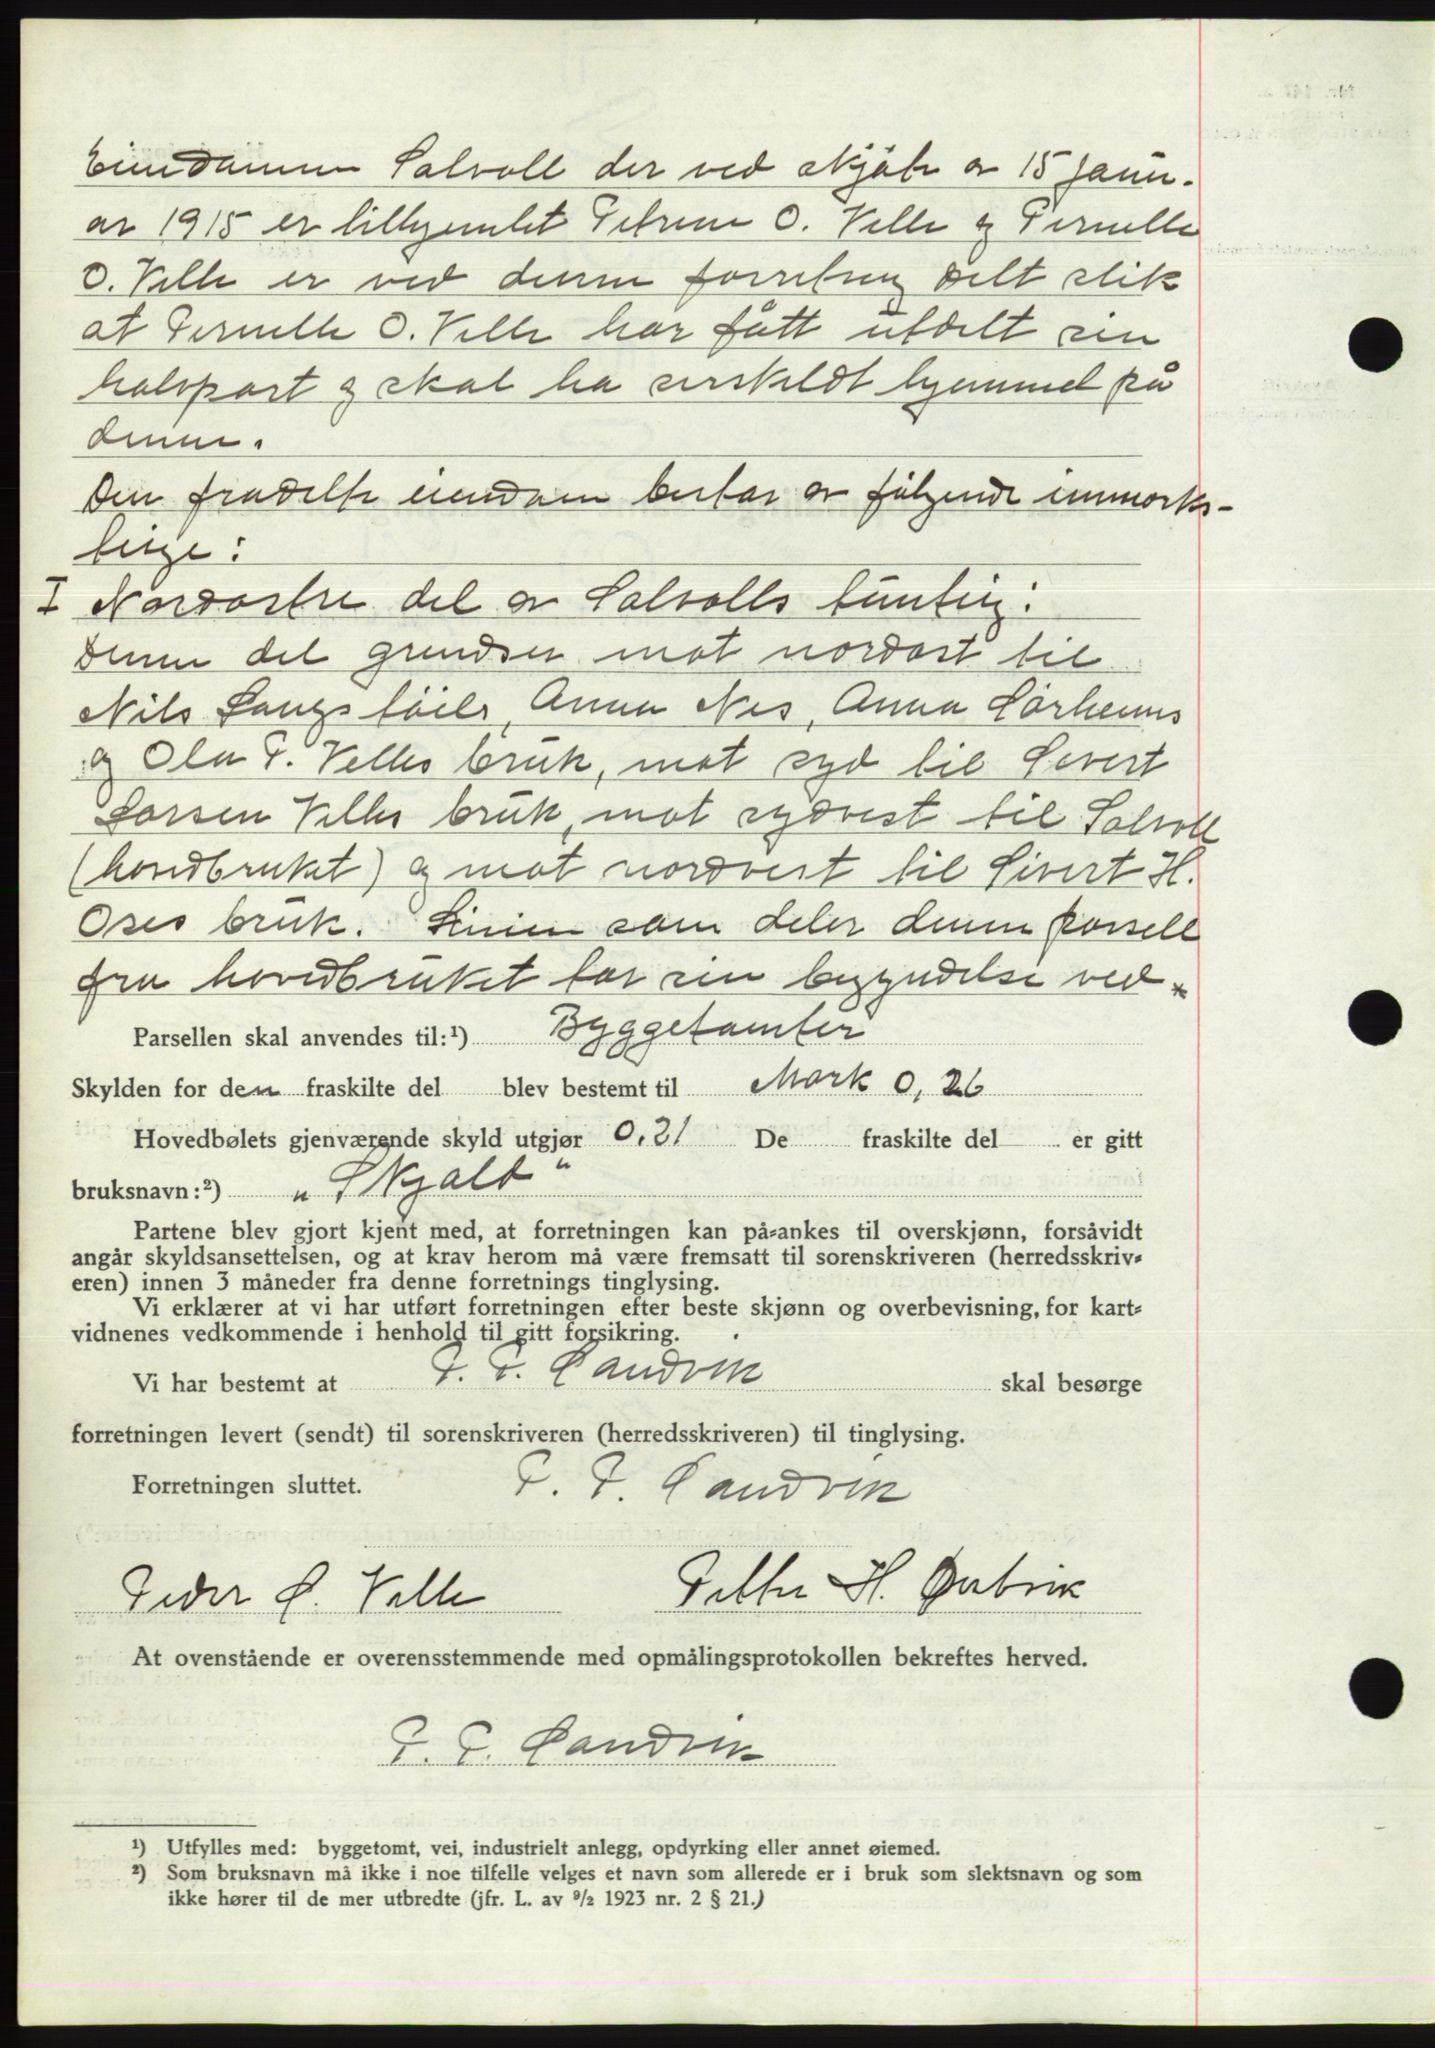 Eiendommen Solvoll der ved skjøte av 15 janu-
ar 1915 er tilhjemlet Petrine O. Velle og Pernelle
O. Velle er ved denne forretning delt slik
at Pernelle O. Velle har fått utdelt sin
halvpart og skal ha serskildt hjemmel på
denne.
Den fradelte eiendom bestar av følgende innmarks-
teige:
I Nordostre del av Solvolls tunteig:
Denne del grendser mot nordost til
Nils Langsløils, Anna Nes, Anna Sørheims
og Ola P. Velles bruk, mot syd til Severt
Larsen Velles bruk, mot sydvest til Solvoll
(hovedbruket) og mot nordvest til Sivert H.
Oses bruk. Linien som deler denne parsell
fra hovedbruket tar sin begyndelse ved *
Parsellen skal anvendes til:¹) Byggetomter
Skylden for den fraskilte del blev bestemt til Mark 0,26
Hovedbølets gjenværende skyld utgjør 0,21 De fraskilte del er gitt
bruksnavn:²) „Skjald“
Partene blev gjort kjent med, at forretningen kan på-ankes til overskjønn, forsåvidt
angår skyldsansettelsen, og at krav herom må være fremsatt til sorenskriveren (herredsskriv-
eren) innen 3 måneder fra denne forretnings tinglysing.
Vi erklærer at vi har utført forretningen efter beste skjønn og overbevisning, for kart-
vidnenes vedkommende i henhold til gitt forsikring.
Vi har bestemt at P. P. Sandvik skal besørge
forretningen levert (sendt) til sorenskriveren (herredsskriveren) til tinglysing.
Forretningen sluttet. P. P. Sandvik
Peder S. Velle Petter H. Ørstvik
At ovenstående er overensstemmende med opmålingsprotokollen bekreftes herved.
P. P. Sandvik
¹) Utfylles med: byggetomt, vei, industrielt anlegg, opdyrking eller annet øiemed.
²) Som bruksnavn må ikke i noe tilfelle velges et navn som allerede er i bruk som slektsnavn og som
ikke hører til de mer utbredte (jfr. L. av ⁹/₂ 1923 nr. 2 § 21.)